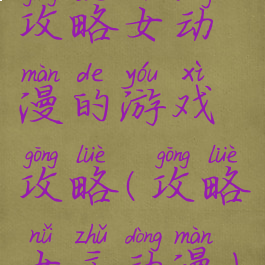 攻略女动
màn de yóu xì
漫的游戏
gōng lüè gōng lüè
攻略(攻略
nǚ zhǔ dòng màn
女主动漫)